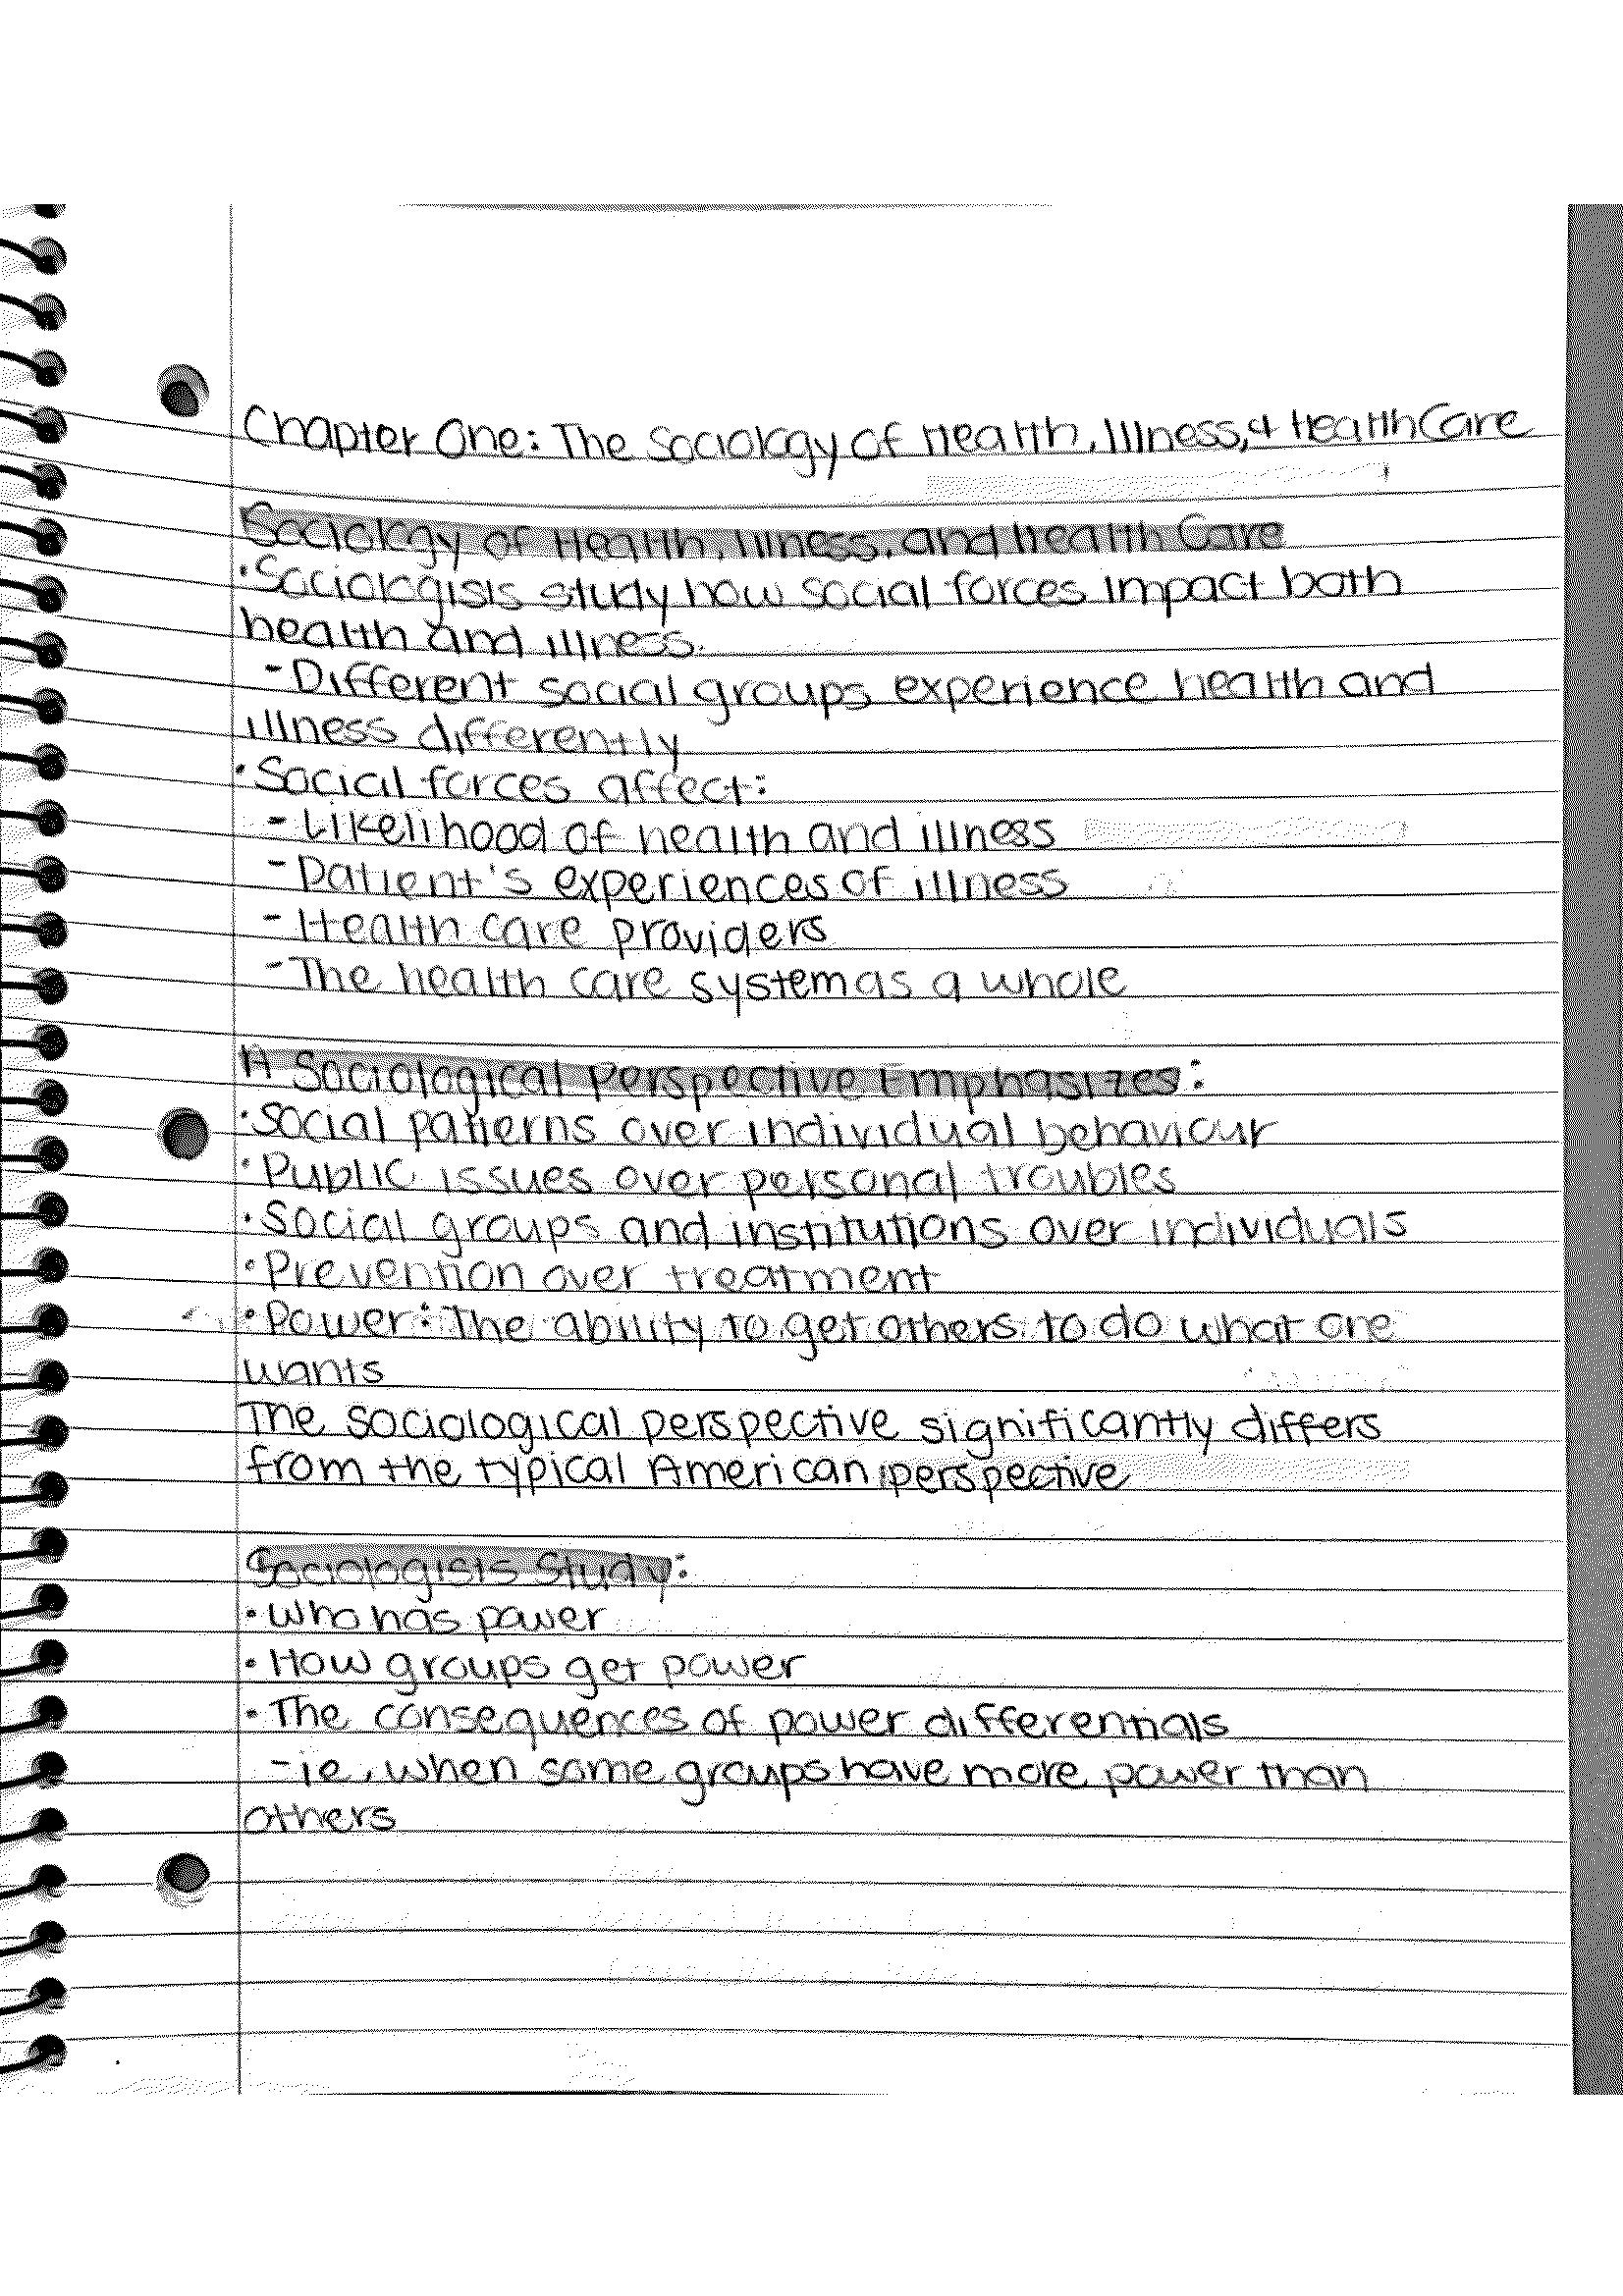 Chapter One: The Sociology of Health, Illness, & Health Care
Sociology of Health, Illness, and Health Care
•Sociologists study how social forces impact both
health and illness.
- Different social groups experience health and
illness differently
•Social forces affect:
- Likelihood of health and illness
- Patient's experiences of illness
- Health care providers
- The health care system as a whole
A Sociological Perspective Emphasizes:
•Social patterns over individual behaviour
•Public issues over personal troubles
•Social groups and institutions over individuals
•Prevention over treatment
•Power: The ability to get others to do what one
wants
The sociological perspective significantly differs
from the typical American perspective
Sociologists Study:
•Who has power
•How groups get power
•The consequences of power differentials
- ie, when some groups have more power than
others